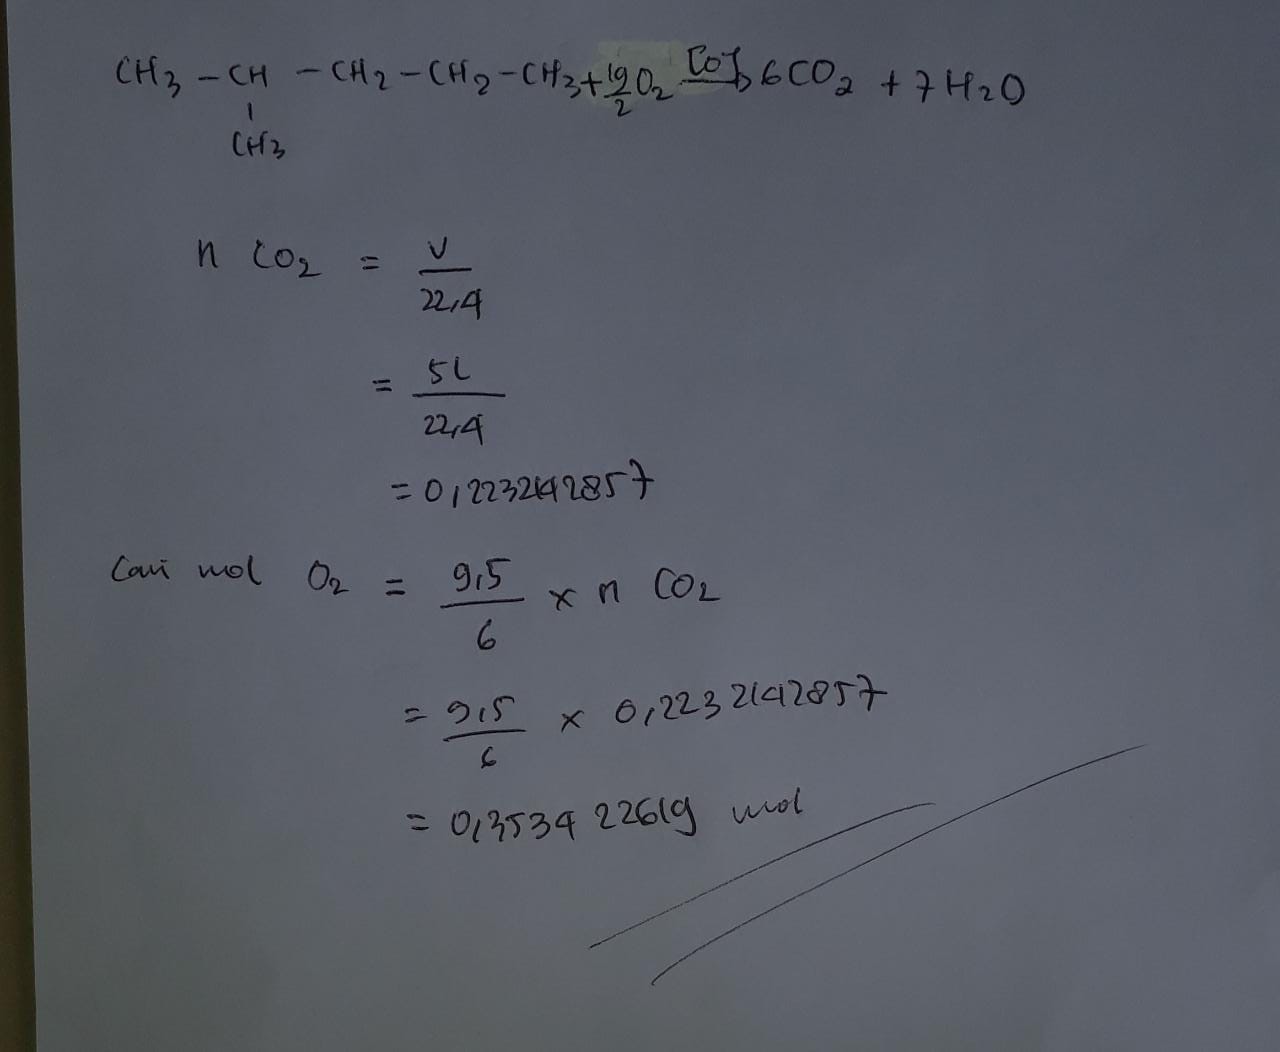 CH3 - CH - CH2 - CH2 - CH3 + 19/2 O2 [O]→ 6CO2 + 7H2O
|
CH3
n CO2 = V/22,4
= 5L/22,4
= 0,2232142857
Cari mol O2 = 9,5/6 × n CO2
= 9,5/6 × 0,2232142857
= 0,353422619 mol